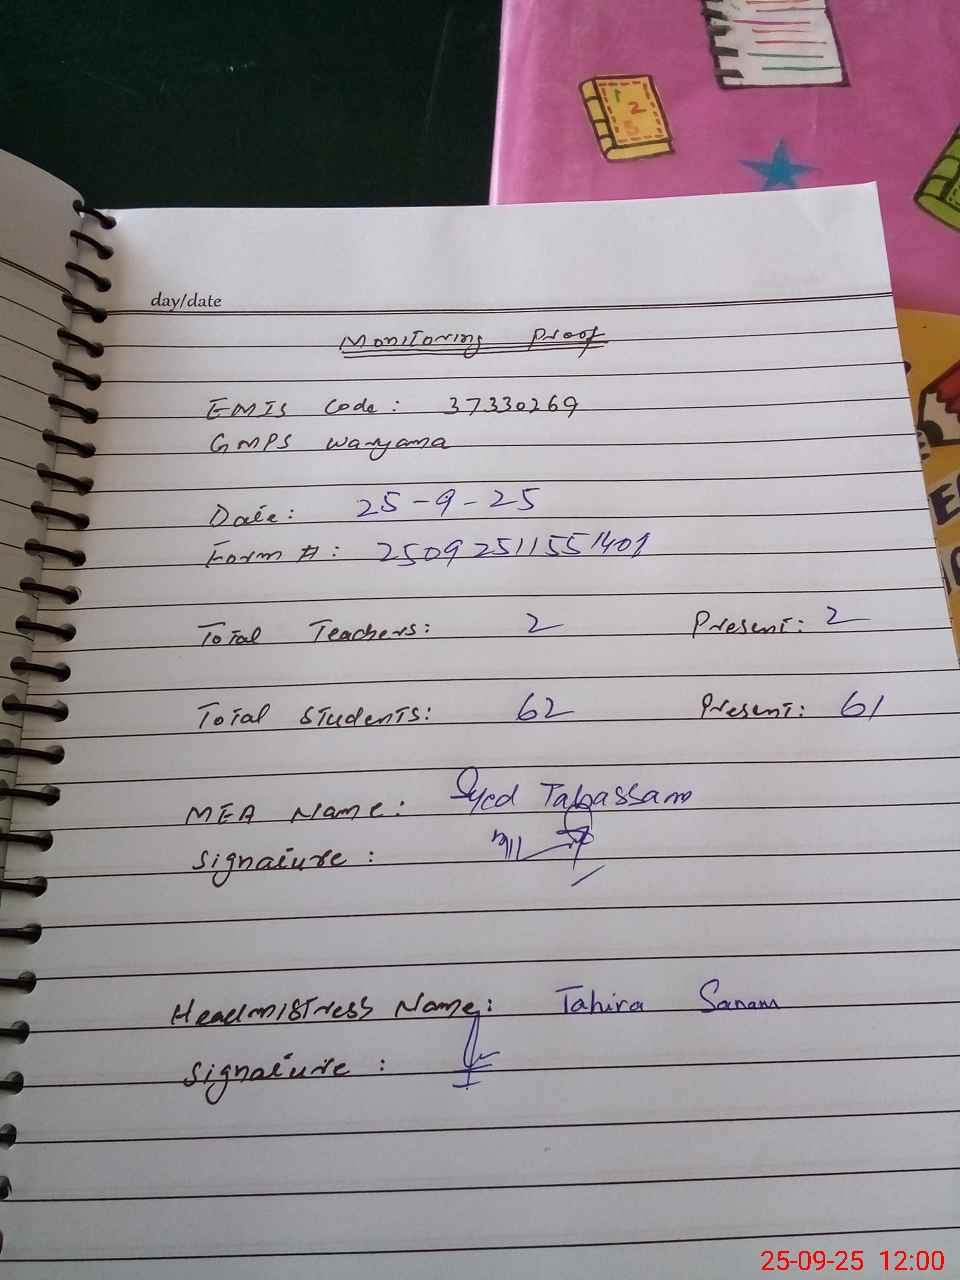 day/date
Monitoring Proof
EMIS Code: 37330269
GMPS Waryama
Date: 25-9-25
Form #: 250925115551401
Total Teachers: 2 Present: 2
Total Students: 62 Present: 61
MEA Name: Syed Tabassam
Signature:
Headmistress Name: Tahira Sanam
Signature:
25-09-25 12:00